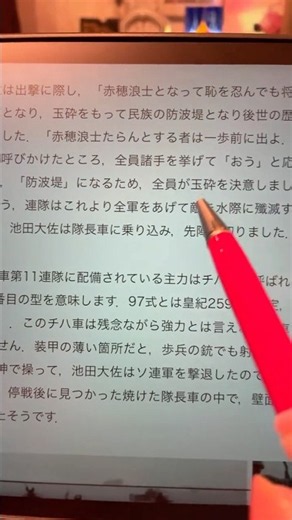 は出撃に際し，「赤穂浪士となって恥を忍んでも将
となり，玉砕をもって民族の防波堤となり後世の歴
した．「赤穂浪士たらんとする者は一歩前に出よ．
呼びかけたところ，全員諸手を挙げて「おう」と応
，「防波堤」になるため，全員が玉砕を決意しまし
う，連隊はこれより全軍をあげて敵を水際に殲滅す
池田大佐は隊長車に乗り込み，先陣を切りました．
車第11連隊に配備されている主力はチハ 呼ばれ
番目の型を意味します．97式とは皇紀259
．このチハ車は残念ながら強力とは言え
せん．装甲の薄い箇所だと，歩兵の銃でも射
神で操って，池田大佐はソ連軍を撃退したので
停戦後に見つかった焼けた隊長車の中で，壁面
たそうです．